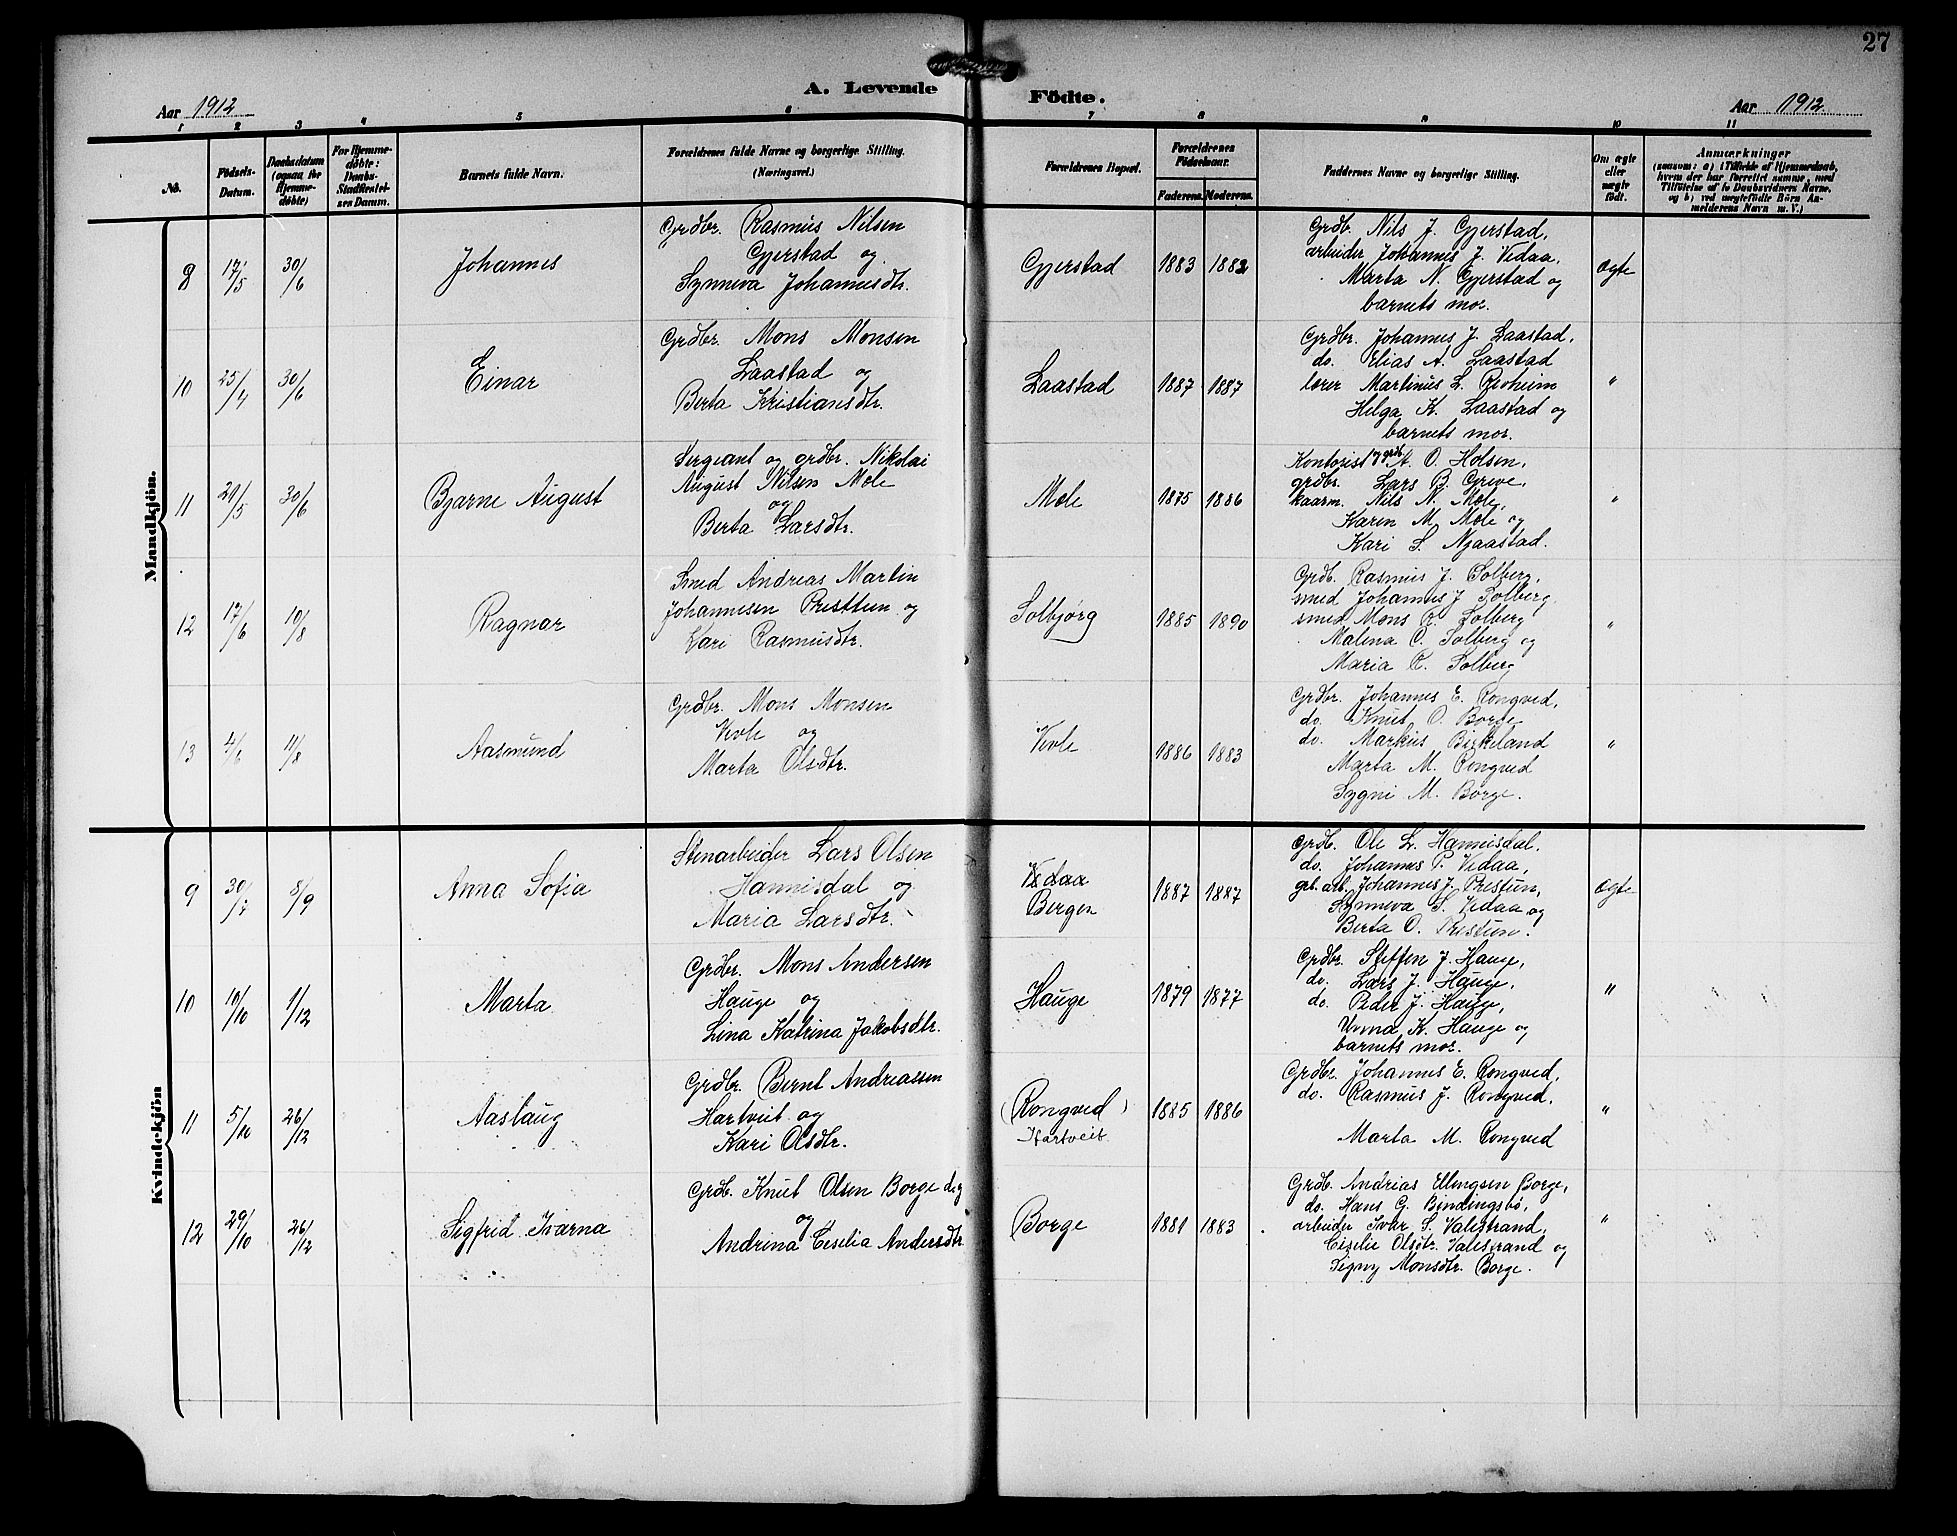 27
A. Levende Födte.
Aar 1912
Aar 1912
1 2 3 4 5 6 7 8 9 10 11
No.
Födsels-
Datum.
Daabsdatum
(ogsaa for
Hjemme-
döbte)
For Hjemme-
döbte:
Daabs-
Stadfæstel-
ses Datum.
Barnets fulde Navn.
Forældrenes fulde Navne og borgerlige Stilling.
(Næringsvei.)
Forældrenes Bopæl.
Forældrenes
Födselsaar.
Faderens. Moderens.
Faddernes Navne og borgerlige Stilling.
Om ægte
eller
uægte
födt.
Anmærkninger
(saasom: a) i Tilfælde af Hjemmedaab,
hvem der har forrettet samme, med
Tilföielse af to Daabsvidners Navne.
og b) ved uægtefödte Börn An-
melderens Navn m. V.)
Mandkjön.
9 17/5 30/6 Johannes
Grdbr. Rasmus Nilsen
Gjerstad og
Synneva Johannesdtr.
Gjerstad 1883 1882
Grdb. Nils J. Gjerstad,
arbeider Johannes J. Vedaa,
Marta N. Gjerstad og
barnets mor.
Ægte
10 25/4 30/6 Einar
Grdbr. Mons Monsen
Laastad og
Berta Kristiansdtr.
Laastad 1887 1887
Grdbr. Johannes J. Laastad,
do. Elias A. Laastad
lærer Martinus L. Roheim
Helga K. Laastad og
barnets mor.
"
11 21/5 30/6 Bjarne August
Sergeant og grdbr. Nikolai
August Nilsen Mele
og
Berta Larsdtr.
Mele 1875 1886
Kontorist og grdb. A. O. Holsen,
grdbr. Lars B. Greve,
kaarm. Nils N. Mele,
Karen M. Mele og
Kari S. Njaastad.
"
12 17/6 10/8 Ragnar
Smed Andreas Martin
Johannesen Presttun og
Kari Rasmusdtr.
Solbjørg 1885 1890
Grdb. Rasmus J. Solberg,
smed Johannes J Solberg,
smed Mons R. Solberg
Malena O. Solberg og
Maria R. Solberg
"
13 4/6 11/8 Aasmund
Grdbr. Mons Monsen
Vevle og
Marta Olsdtr.
Vevle 1886 1883
Grdbr. Johannes E. Rongved,
do. Knut O. Borge
do. Markus Birkeland
Marta M. Rongved
Sygni M. Borge.
"
Kvindekjön
9 30/7 8/9 Anna Sofia
Stenarbeider Lars Olsen
Hannisdal og
Maria Larsdtr.
Vedaa
Bergen
1887 1887
Grdb. Ole L. Hannisdal,
do. Johannes P. Vedaa,
grb. arb. Johannes J. Prestun,
Synneva S. Vedaa og
Berta O. Prestun.
Ægte
10 19/10 1/12 Marta
Grdbr. Mons Andersen
Hauge og
Lina Katrina Jakobsdtr.
Hauge 1879 1877
Grdbr. Steffen J. Hauge,
do. Lars J. Hauge,
do. Peder J. Hauge,
Unna K. Hauge og
barnets mor.
"
11 5/10 26/12 Aaslaug
Grdbr. Bernt Andreassen
Hartveit og
Kari Olsdtr.
(Rongved)
Hartveit
1885 1886
Grdbr. Johannes E. Rongved,
do. Rasmus J. Rongved,
Marta M. Rongved
"
12 29/10 26/12 Sigfred Ivarna
Grdb. Knut Olsen Borge
og
Andrina Cecelia Andersdtr
Borge 1881 1883
Grdb. Andrias Ellingsen Borge,
do. Hans G. Bindingsbø,
arbeider Ivar S. Valestrand,
Cicelie Olsdtr. Valestrand og
Signy Monsdtr. Borge.
"